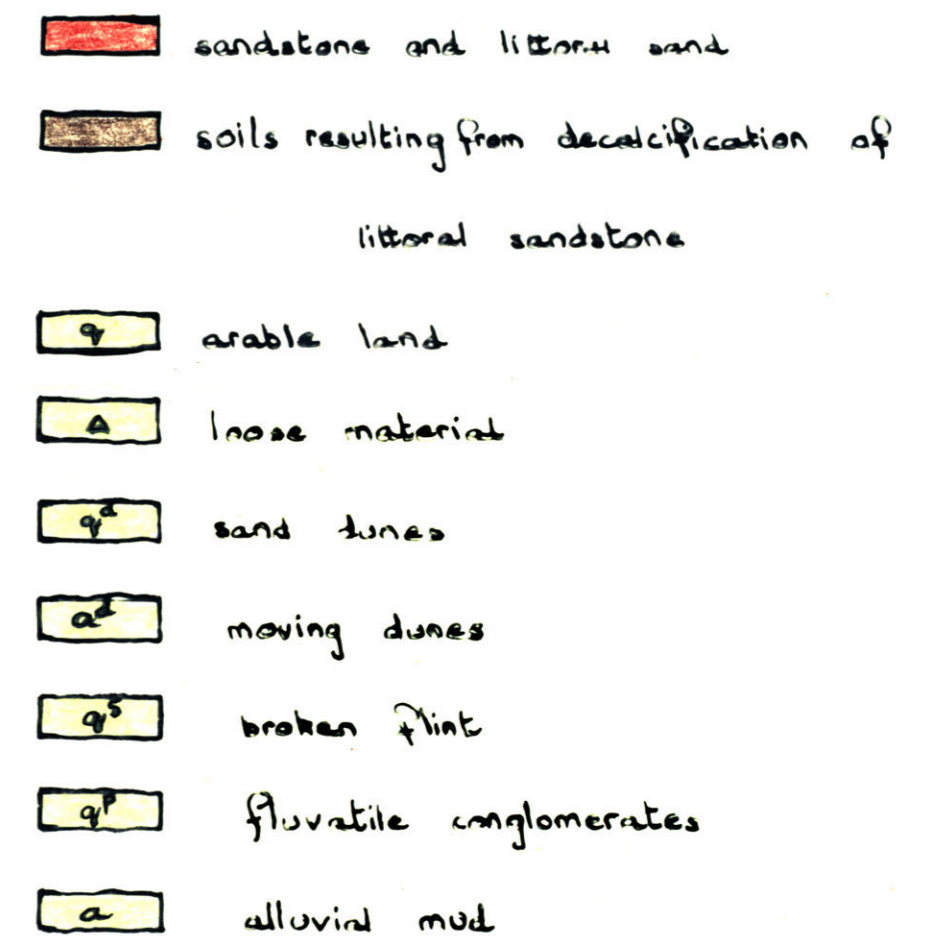 sandstone and littoral sand
soils resulting from decalcification of
littoral sandstone
q arable land
Δ loose material
q^d sand dunes
a^d moving dunes
q^s broken flint
q^p fluvatile conglomerates
a alluvial mud